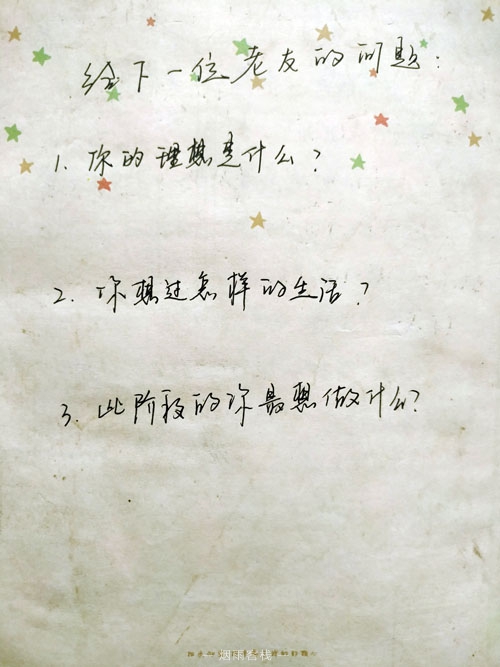 给下一位老友的问题：
1. 你的理想是什么？
2. 你想过怎样的生活？
3. 此阶段的你最想做什么？
烟雨客栈